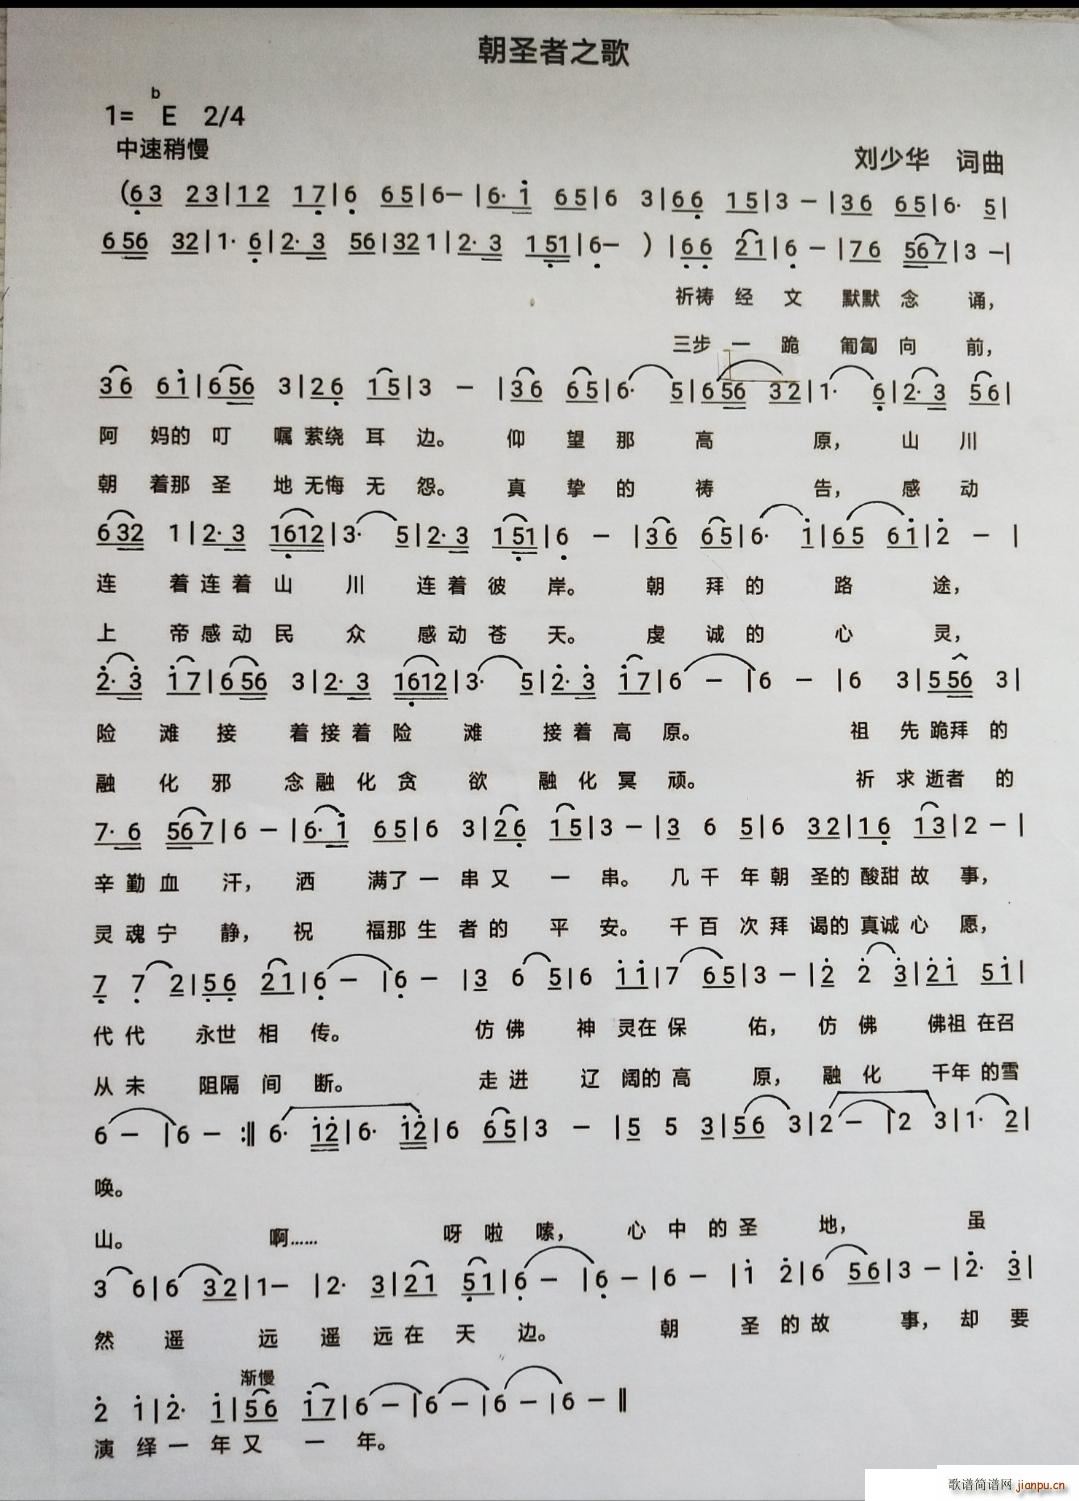 朝圣者之歌
1= bE 2/4
中速稍慢
刘少华 词曲
(63 23|12 17|6 65|6—|6· 1 65|6 3|66 15|3 —|36 65|6· 5|
656 32|1· 6|2· 3 56|32 1|2· 3 151|6— )|66 21|6 —|76 567|3 —|
祈祷 经 文 默默 念 诵,
三步 一 跪 匍匐 向 前,
36 61|656 3|26 15|3 — |36 65|6· 5|656 32|1· 6|2· 3 56|
阿 妈的 叮 嘱 萦绕 耳 边。 仰 望 那 高 原, 山 川
朝 着那 圣 地 无悔 无 怨。 真 挚 的 祷 告, 感 动
632 1|2· 3 1612|3· 5|2· 3 151|6 — |36 65|6· 1|65 61|2 — |
连 着连 着 山 川 连 着 彼 岸。 朝 拜 的 路 途,
上 帝感 动 民 众 感 动 苍 天。 虔 诚 的 心 灵,
2· 3 17|656 3|2· 3 1612|3· 5|2· 3 17|6 — |6 — |6 3|556 3|
险 滩 接 着接 着 险 滩 接 着 高 原。 祖 先 跪拜 的
融 化 邪 念融 化 贪 欲 融 化 冥 顽。 祈 求 逝者 的
7· 6 567|6 —|6· 1 65|6 3|26 15|3 —|3 6 5|6 32|16 13|2 —|
辛 勤 血 汗, 洒 满了 一 串 又 一 串。 几 千 年 朝 圣的 酸甜 故 事,
灵 魂 宁 静, 祝 福那 生 者 的 平 安。 千 百 次 拜 谒的 真诚 心 愿,
7 7 2|56 21|6 — |6 — |3 6 5|6 11|7 65|3 —|2 2 3|21 51|
代 代 永世 相 传。 仿 佛 神 灵在 保 佑, 仿 佛 佛祖 在召
从 未 阻隔 间 断。 走 进 辽 阔的 高 原, 融 化 千年 的雪
6 — |6 — :‖ 6· 12|6· 12|6 65|3 — |5 5 3|56 3|2 — |2 3|1· 2|
唤。
山。 啊…… 呀 啦 嗦, 心 中 的 圣 地, 虽
3 6|6 32|1— |2· 3|21 51|6 — |6 —|6 — |1 2|6 56|3 —|2· 3|
然 遥 远 遥 远 在 天 边。 朝 圣 的 故 事, 却 要
渐慢
2 1|2· 1|56 17|6 — |6 — |6 — |6 — ‖
演 绎 一 年 又 一 年。
歌谱简谱网 jianpu.cn